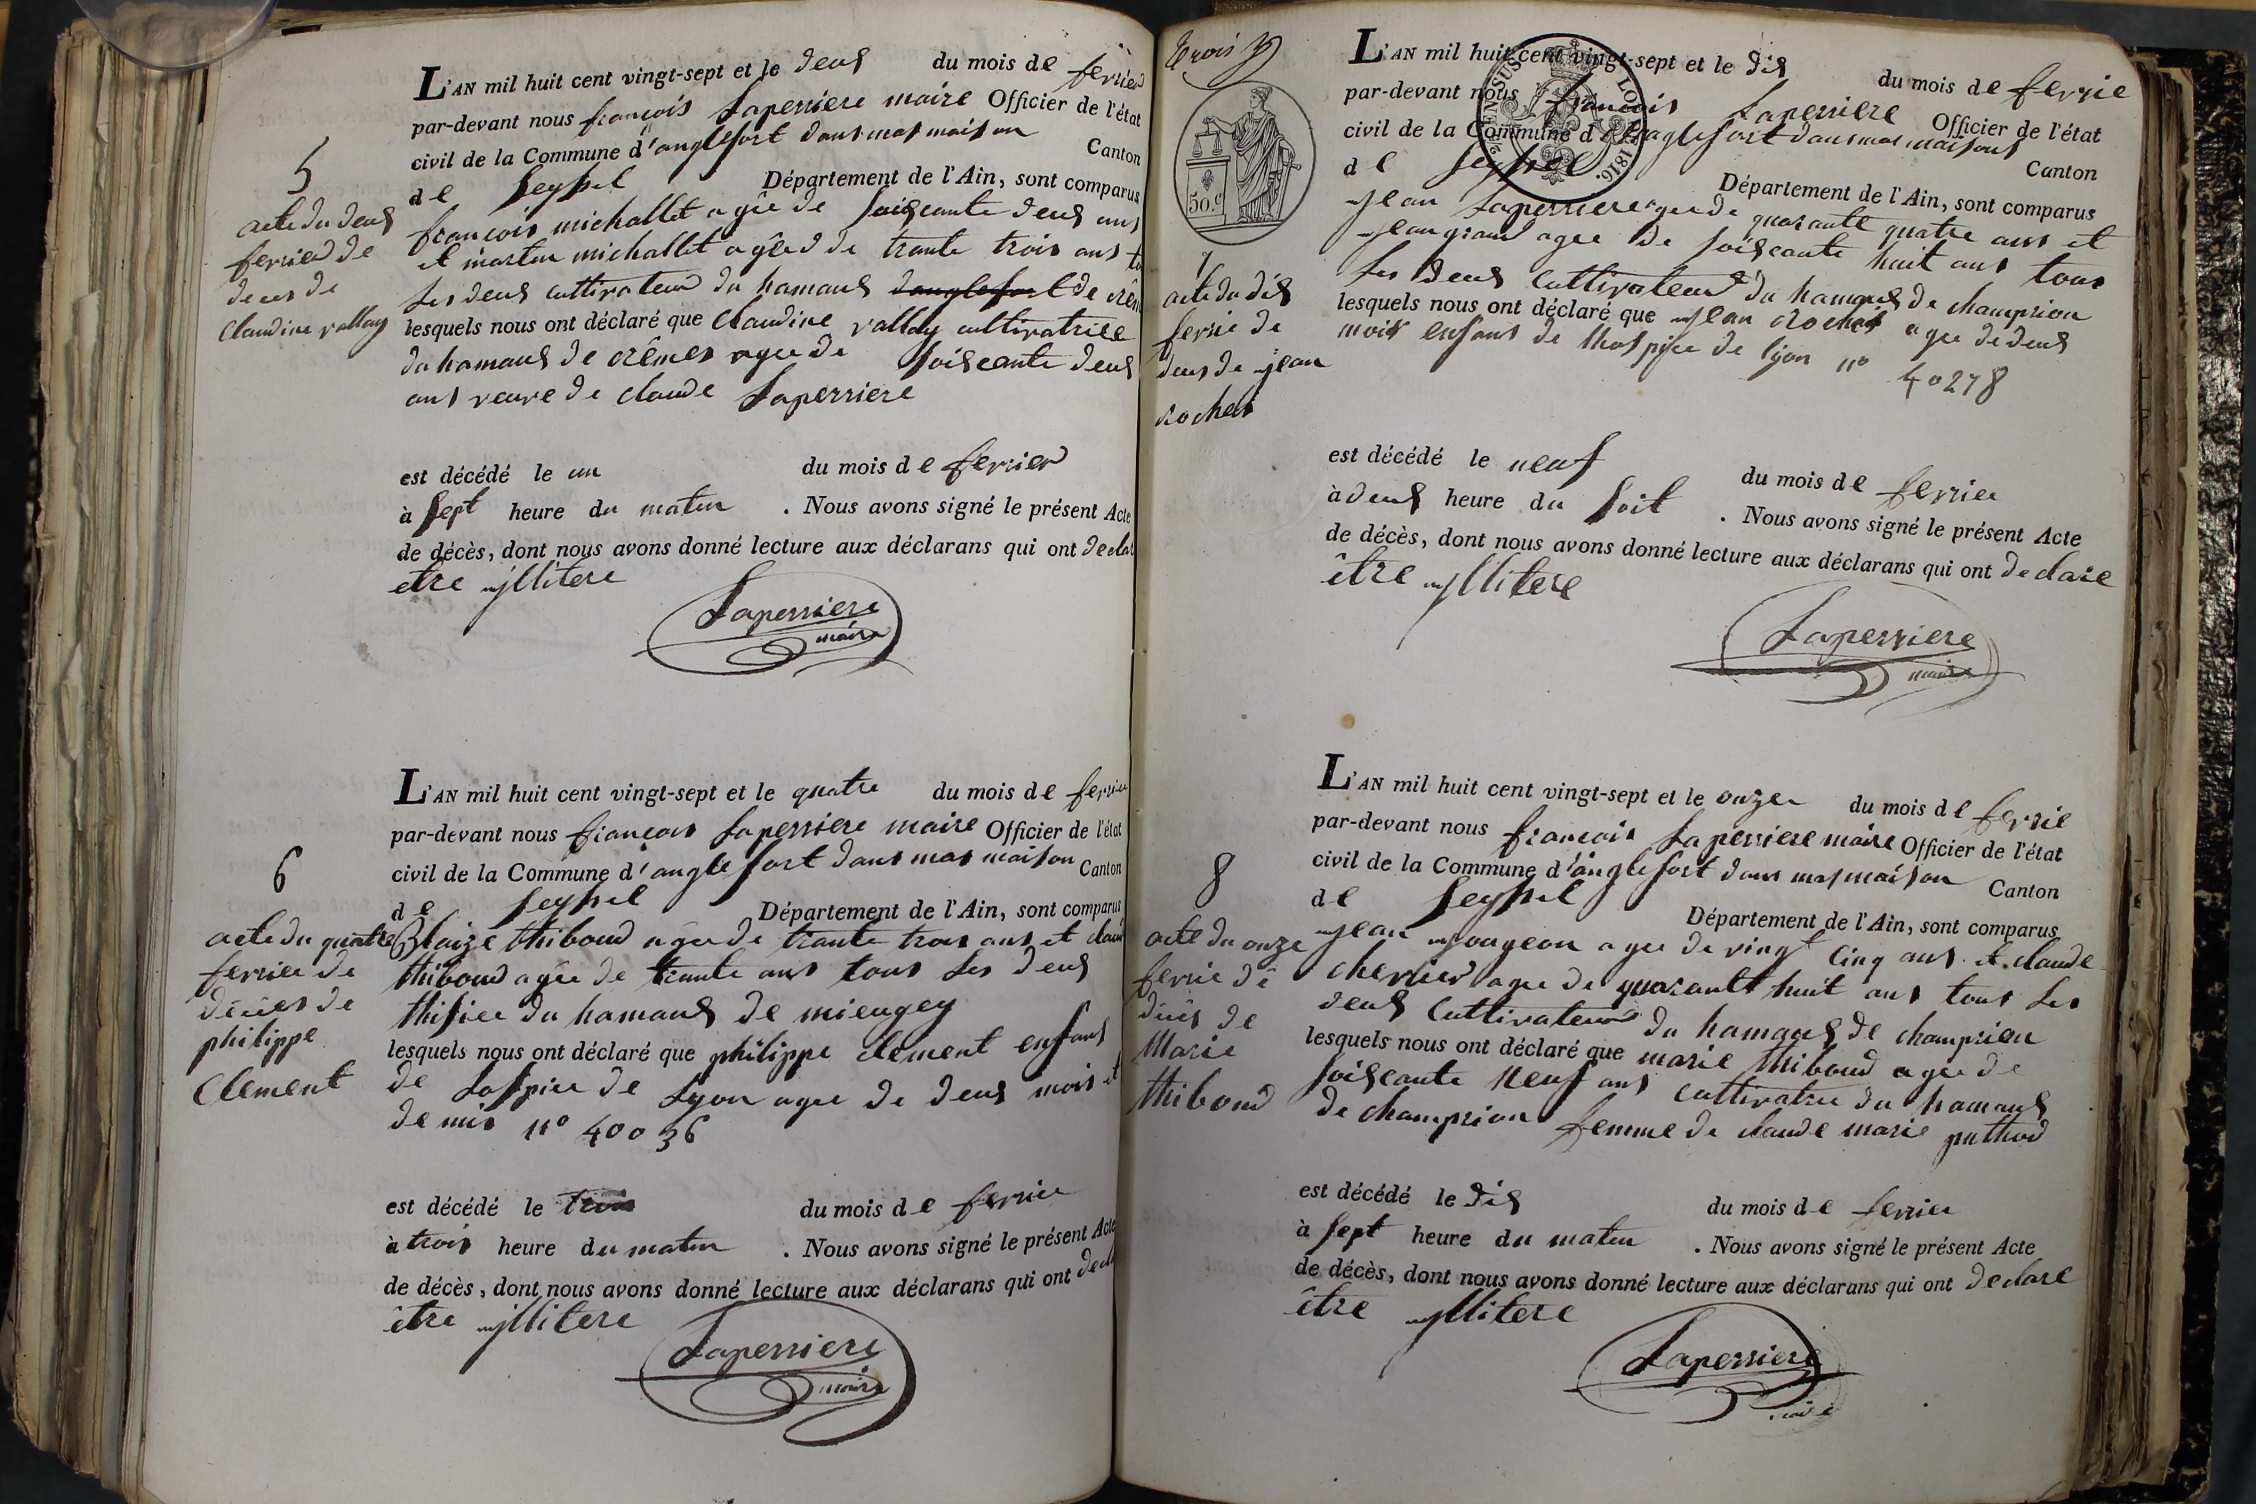 5
acte du deux
fevrier de
deces de
Claudine vallay
L'AN mil huit cent vingt-sept et le deux du mois de fevrier
par-devant nous françois Laperriere maire Officier de l'état
civil de la Commune d'anglefort dans mas maison Canton
de Seyssel Département de l'Ain, sont comparus
françois michallet agée de soiscante deux ans
et martin michallet agée de trante trois ans
les deux cultivateur du hamaux danglefort de
lesquels nous ont déclaré que Claudine vallay cultivatrice
du hamaux de crêmes agee de soiscante deux
ans veuve de claude Laperriere
est décédé le un du mois de fevrier
à sept heure du matin . Nous avons signé le présent Acte
de décès, dont nous avons donné lecture aux déclarans qui ont
etre illitere
Laperriere
maire
6
acte du quatre
fevrier de
décès de
philippe
Clement
L'AN mil huit cent vingt-sept et le quatre du mois de fevrier
par-devant nous françois Laperriere maire Officier de l'état
civil de la Commune d'anglefort dans mas maison Canton
de Seyssel Département de l'Ain, sont comparus
Blaize thiboud agee de trante trois ans et
thiboud agée de trante ans tous les deux
du hamaux de mieugey
lesquels nous ont déclaré que philippe clement enfans
de Lospice de Lyon agee de deux mois et
demis n° 40036
est décédé le trois du mois de fevrier
à trois heure du matin . Nous avons signé le présent Acte
de décès, dont nous avons donné lecture aux déclarans qui ont
être illitere
Laperriere
maire
trois
50.c
LOI DE 1816.
7
acte du dix
fevrie de
deces de jean
rochas
L'AN mil huit cent vingt-sept et le dix du mois de fevrie
par-devant nous francois Laperriere Officier de l'état
civil de la Commune d'anglefort dans mas maison Canton
de Seyssel Département de l'Ain, sont comparus
jean Laperriere agee de quarante quatre ans et
jean grand agee de soiscante huit ans tous
les deux Cultivateur du hamaux de champrion
lesquels nous ont déclaré que jean rochas agee de deux
mois enfans de lhospice de lyon n° 40278
est décédé le neuf du mois de fevrier
à deux heure du soit . Nous avons signé le présent Acte
de décès, dont nous avons donné lecture aux déclarans qui ont declare
être illitere
Laperriere
maire
8
acte du onze
fevrie de
décès de
Marie
thiboud
L'AN mil huit cent vingt-sept et le onze du mois de fevrie
par-devant nous francois Laperriere maire Officier de l'état
civil de la Commune d'anglefort dans mas maison Canton
de Seyssel Département de l'Ain, sont comparus
jean agee de vingt cinq ans et claude
chervier agee de quarante huit ans tous les
deux Cultivateur du hamaux de champrion
lesquels nous ont déclaré que marie thiboud agee de
soiscante neuf ans cultivatrice du hamaux
de champrion femme de claude marie puthod
est décédé le dix du mois de fevrier
à sept heure du matin . Nous avons signé le présent Acte
de décès, dont nous avons donné lecture aux déclarans qui ont declare
être illitere
Laperriere
maire